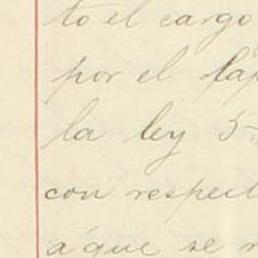 to el cargo
por el
la ley 5
con respect
a que se